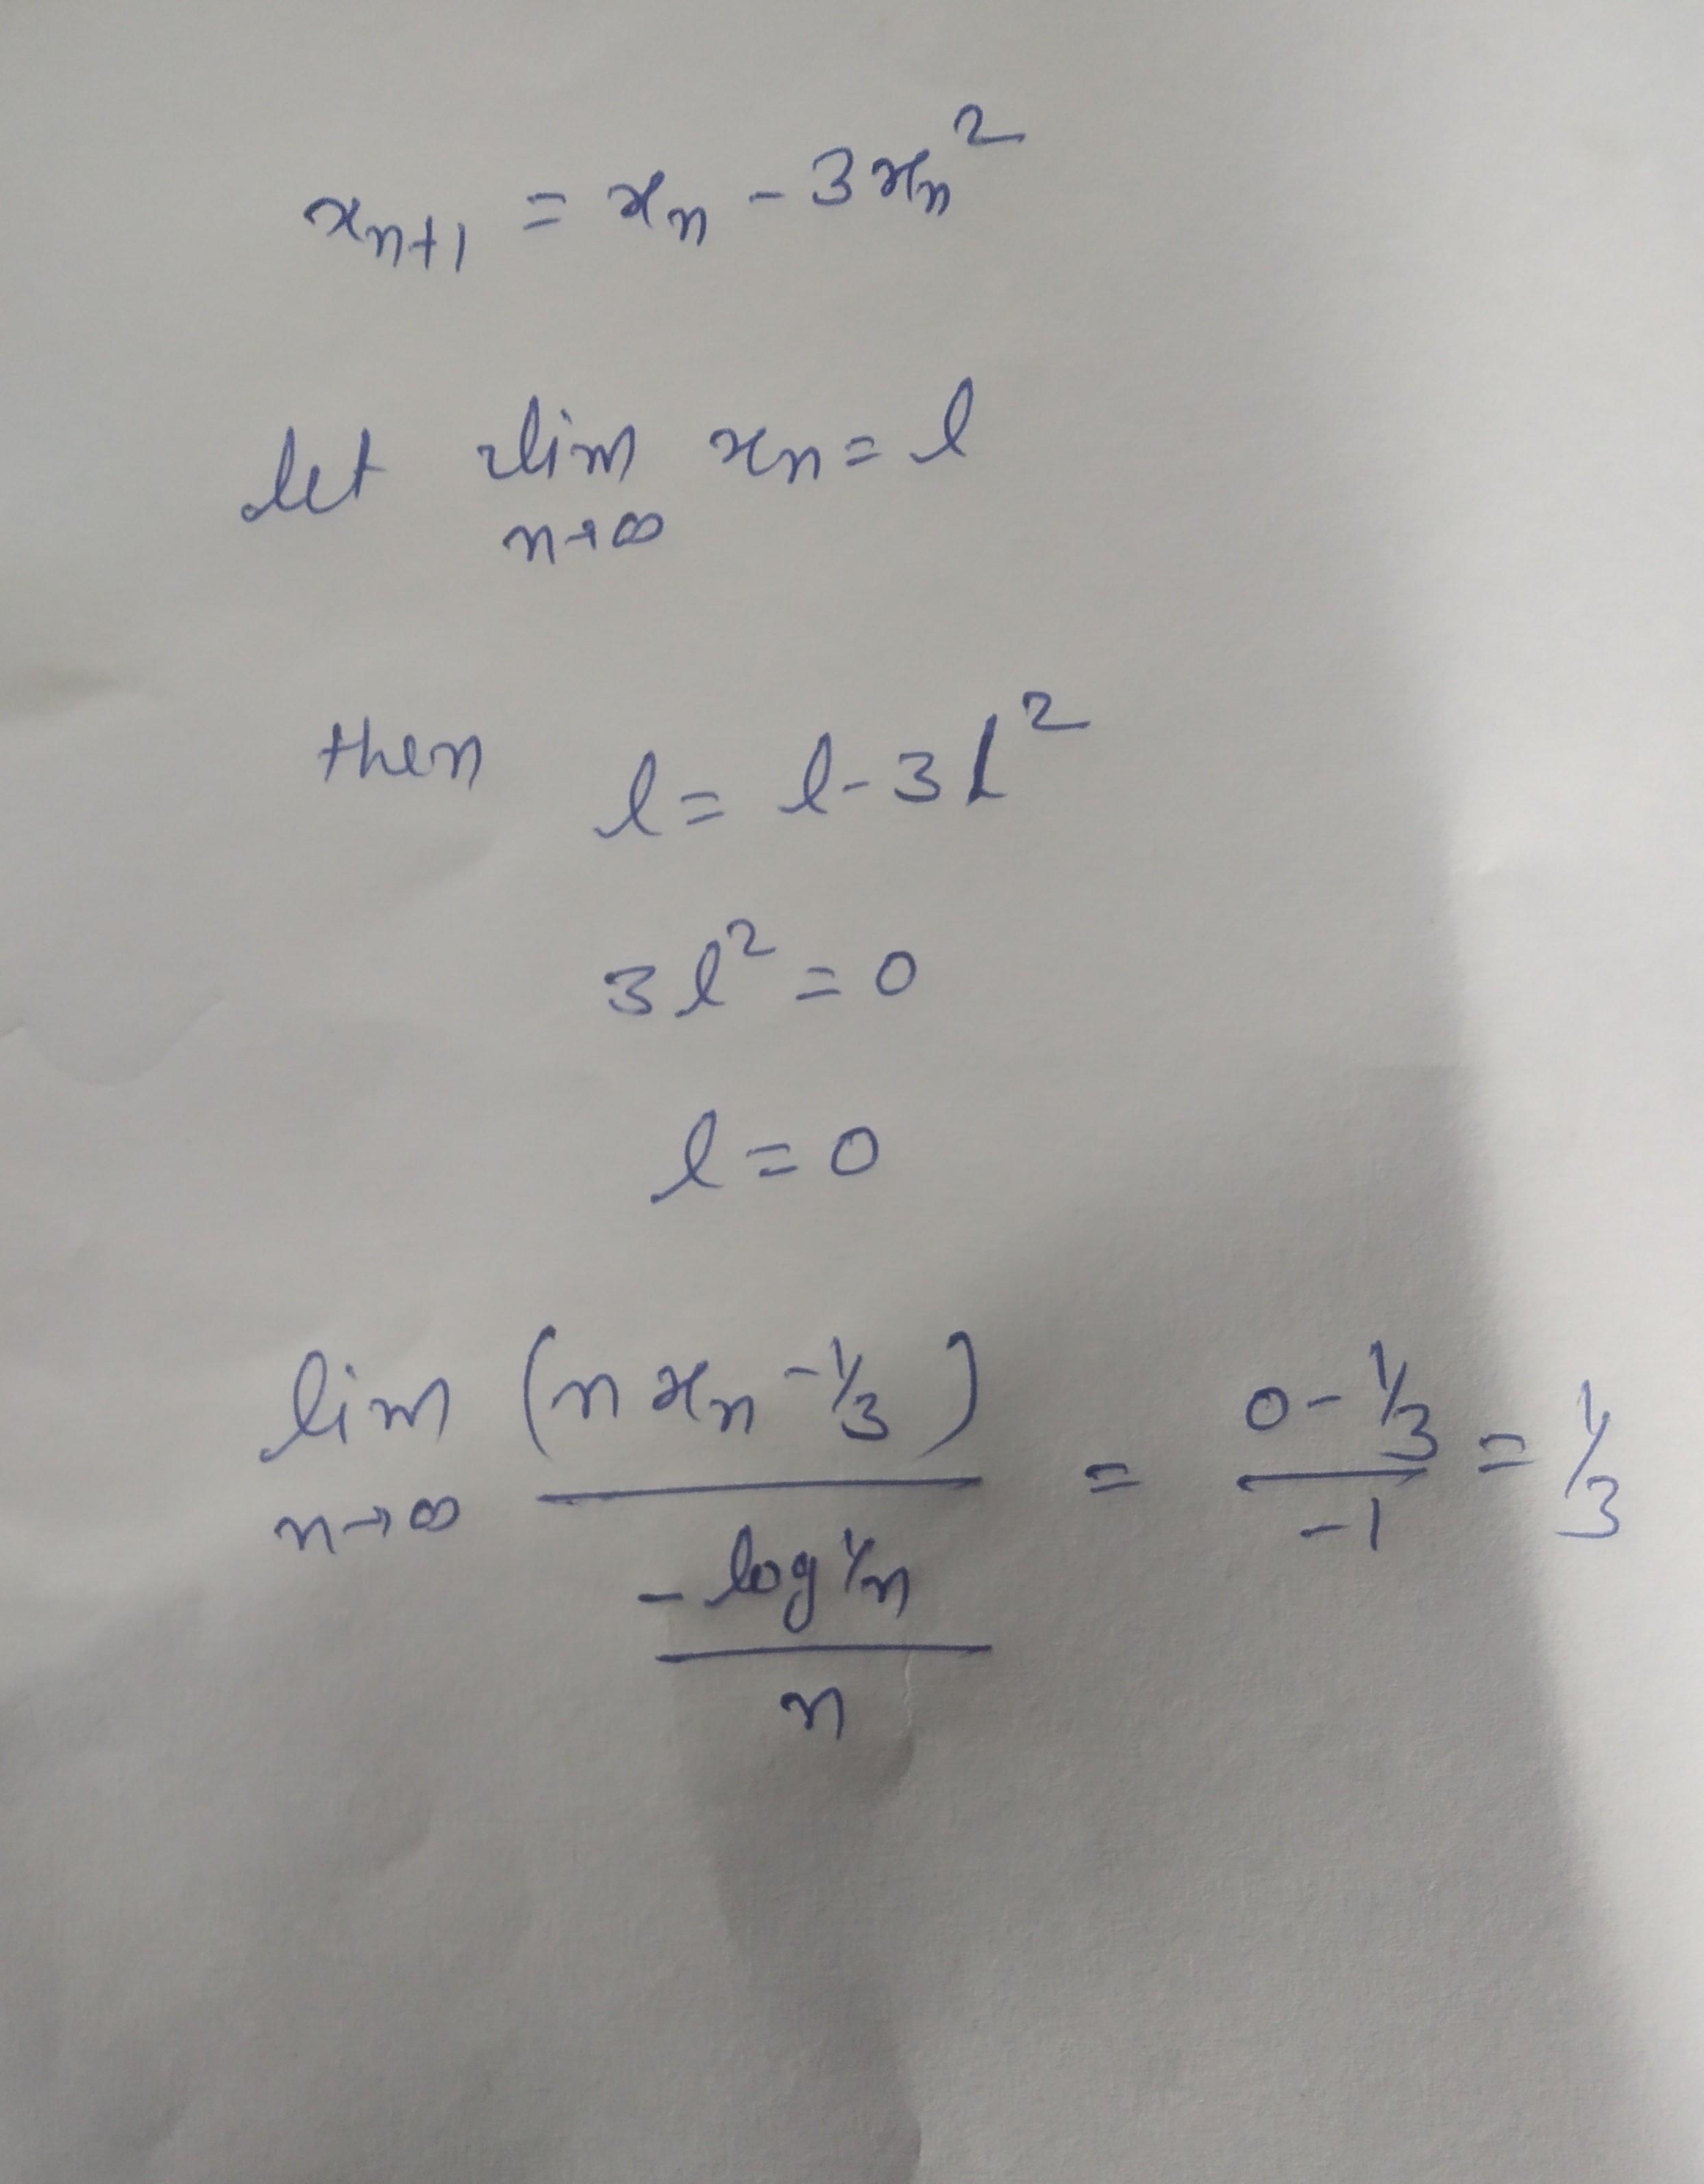 xₙ₊₁ = xₙ - 3xₙ²
let lim xₙ = l
n→∞
then l = l - 3l²
3l² = 0
l = 0
lim (n xₙ - 1/3) / (- log 1/n / n) = (0 - 1/3) / -1 = 1/3
n→∞